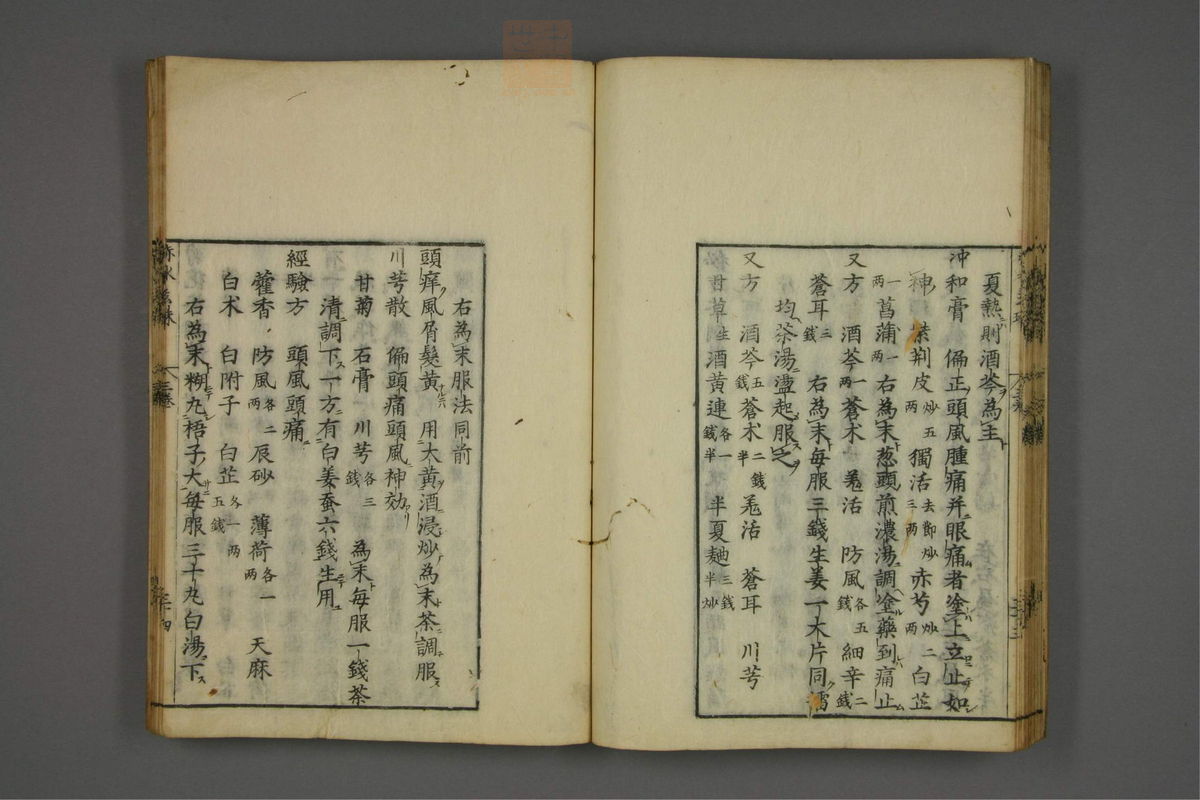 夏熱則酒芩為主
冲和膏　偏正頭風腫痛并眼痛者塗上立止如
神　紫荆皮炒五两　獨活去節炒三两　赤芍炒二两　白芷
一两　菖蒲一两　右為末葱頭煎濃湯調塗藥到痛止
又方　酒芩一两　蒼术　羗活　防風各五錢　細辛二錢
蒼耳三錢　右為末毎服三錢生姜一大片同擂
均茶湯盪起服之
又方　酒芩五錢　蒼术二錢半　羗活　蒼耳　川芎
甘草生　酒黄連各一錢半　半夏麯三錢半炒
右為末服法同前
頭痒風屑髮黄　用大黄酒浸炒為末茶調服
川芎散　偏頭痛頭風神効
甘菊　石膏　川芎各三錢　為末毎服一錢茶
清調下一方有白姜蚕六錢生用
經驗方　頭風頭痛
藿香　防風各二两　辰砂　薄荷各一两　天麻
白术　白附子　白芷各一两五錢
右為末糊丸梧子大毎服三十丸白湯下
赤水